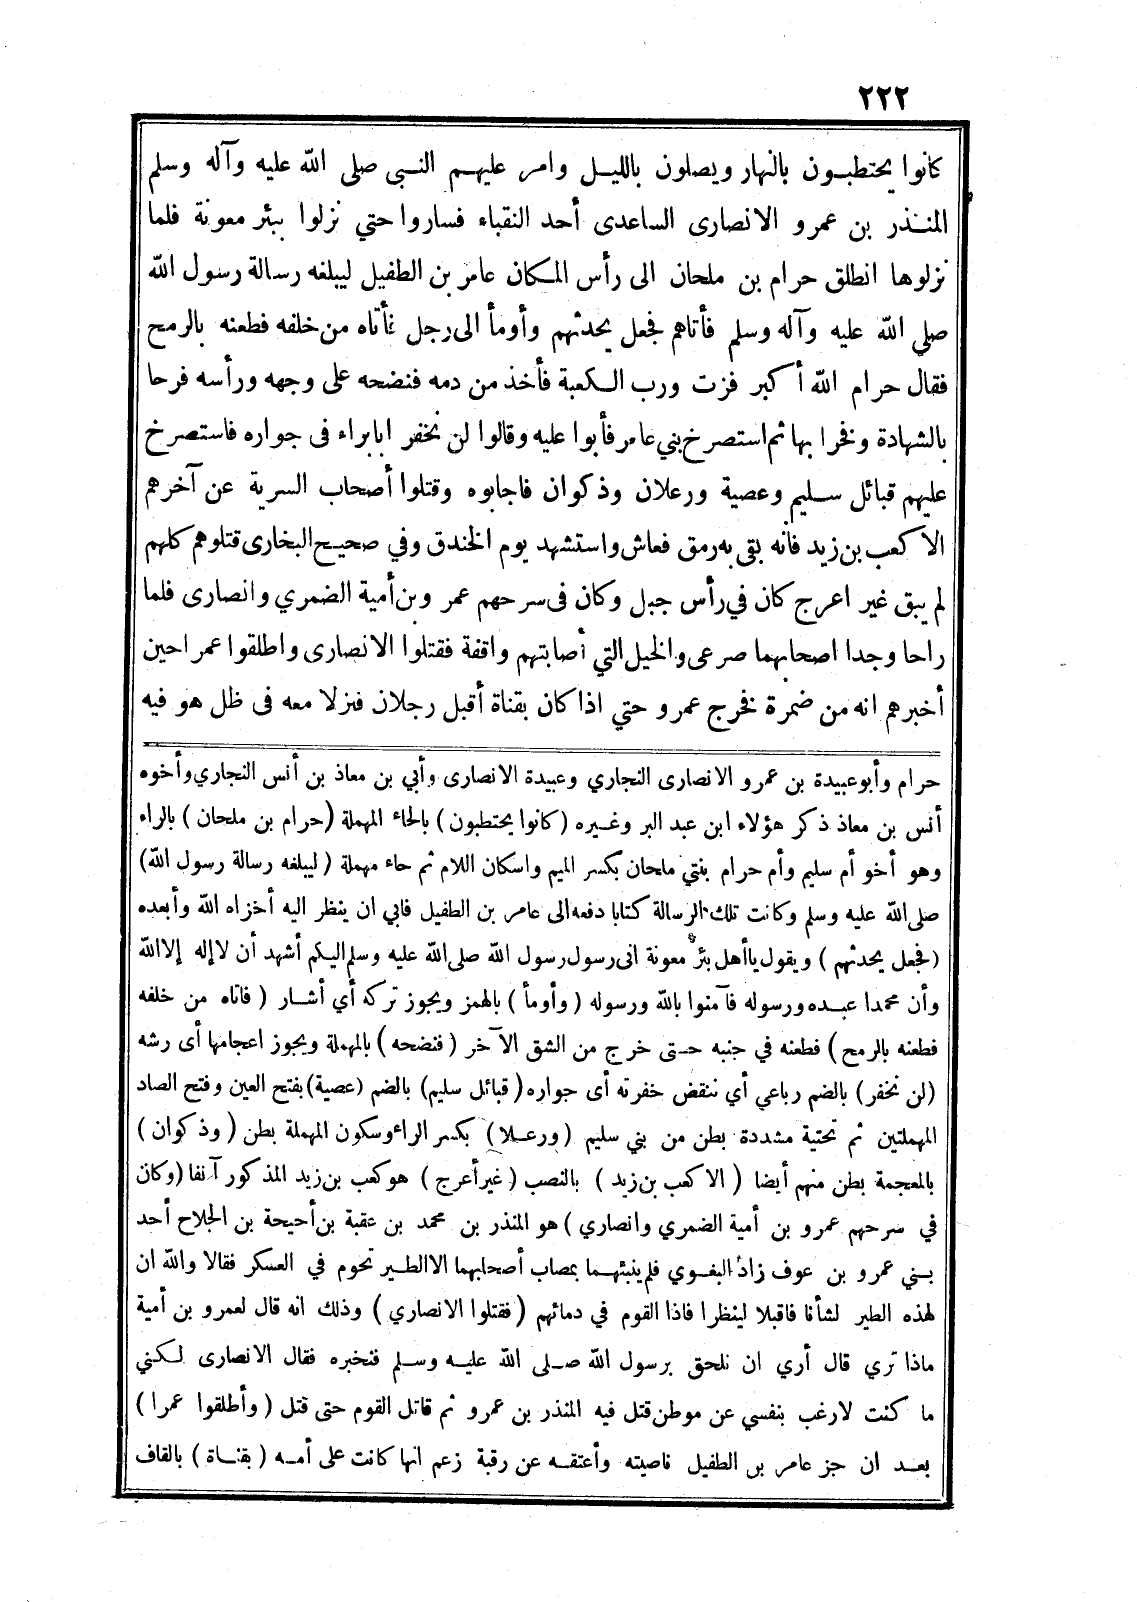 ٢٢٢
كانوا يحتطبون بالنهار ويصلون بالليل وامر عليهم النبى صلى الله عليه وآله وسلم
المنذر بن عمرو الانصارى الساعدى أحد النقباء فساروا حتي نزلوا ببئر معونة فلما
نزلوها انطلق حرام بن ملحان الى رأس المكان عامر بن الطفيل ليبلغه رسالة رسول الله
صلي الله عليه وآله وسلم فأتاهم فجعل يحدثهم وأومأ الى رجل فأتاه من خلفه فطعنه بالرمح
فقال حرام الله أكبر فزت ورب الكعبة فأخذ من دمه فنضحه على وجهه ورأسه فرحا
بالشهادة وفخرا بها ثم استصرخ بني عامر فأبوا عليه وقالوا لن نخفر ابابراء فى جواره فاستصرخ
عليهم قبائل سليم وعصية ورعلان وذكوان فاجابوه وقتلوا أصحاب السرية عن آخرهم
الا كعب بن زيد فانه بقى به رمق فعاش واستشهد يوم الخندق وفي صحيح البخارى قتلوهم كلهم
لم يبق غير اعرج كان في رأس جبل وكان فى سرحهم عمر وبن أمية الضمري وانصارى فلما
راحا وجدا اصحابهما صرعى والخيل التي أصابتهم واقفة فقتلوا الانصارى واطلقوا عمرا حين
أخبرهم انه من ضمرة فخرج عمرو حتي اذا كان بقناة أقبل رجلان فنزلا معه فى ظل هو فيه
حرام وأبو عبيدة بن عمرو الانصارى النجاري وعبيدة الانصارى وأبي بن معاذ بن أنس النجاري وأخوه
أنس بن معاذ ذكر هؤلاء ابن عبد البر وغيره (كانوا يحتطبون) بالحاء المهملة (حرام بن ملحان) بالراء
وهو أخو أم سليم وأم حرام بنتي ملحان بكسر الميم واسكان اللام ثم حاء مهملة (ليبلغه رسالة رسول الله)
صلى الله عليه وسلم وكانت تلك الرسالة كتابا دفعه الى عامر بن الطفيل فابي ان ينظر اليه أخزاه الله وأبعده
(فجعل يحدثهم) ويقول يا أهل بئر معونة انى رسول رسول الله صلى الله عليه وسلم اليكم أشهد أن لا إله إلا الله
وأن محمدا عبده ورسوله فآمنوا بالله ورسوله (وأومأ) بالهمز ويجوز تركه أي أشار (فاتاه من خلفه
فطعنه بالرمح) فطعنه في جنبه حتى خرج من الشق الآخر (فنضحه) بالمهملة ويجوز اعجامها أى رشه
(لن نخفر) بالضم رباعي أي ننقض خفرته أى جواره (قبائل سليم) بالضم (عصية) بفتح العين وفتح الصاد
المهملتين ثم تحتية مشددة بطن من بني سليم (ورعلا) بكسر الراء وسكون المهملة بطن (وذكوان)
بالمعجمة بطن منهم أيضا (الا كعب بن زيد) بالنصب (غير أعرج) هو كعب بن زيد المذكور آنفا (وكان
في سرحهم عمرو بن أمية الضمري وانصاري) هو المنذر بن محمد بن عقبة بن أحيحة بن الجلاح أحد
بني عمرو بن عوف زاد البغوي فلم ينبئهما بمصاب أصحابهما الا الطير تحوم في العسكر فقالا والله ان
لهذه الطير لشأنا فاقبلا لينظرا فاذا القوم في دمائهم (فقتلوا الانصاري) وذلك انه قال لعمرو بن أمية
ماذا تري قال أري ان نلحق برسول الله صلى الله عليه وسلم فنخبره فقال الانصارى لكني
ما كنت لارغب بنفسي عن موطن قتل فيه المنذر بن عمرو ثم قاتل القوم حتى قتل (وأطلقوا عمرا)
بعد ان جز عامر بن الطفيل ناصيته وأعتقه عن رقبة زعم انها كانت على أمه (بقناة) بالقاف